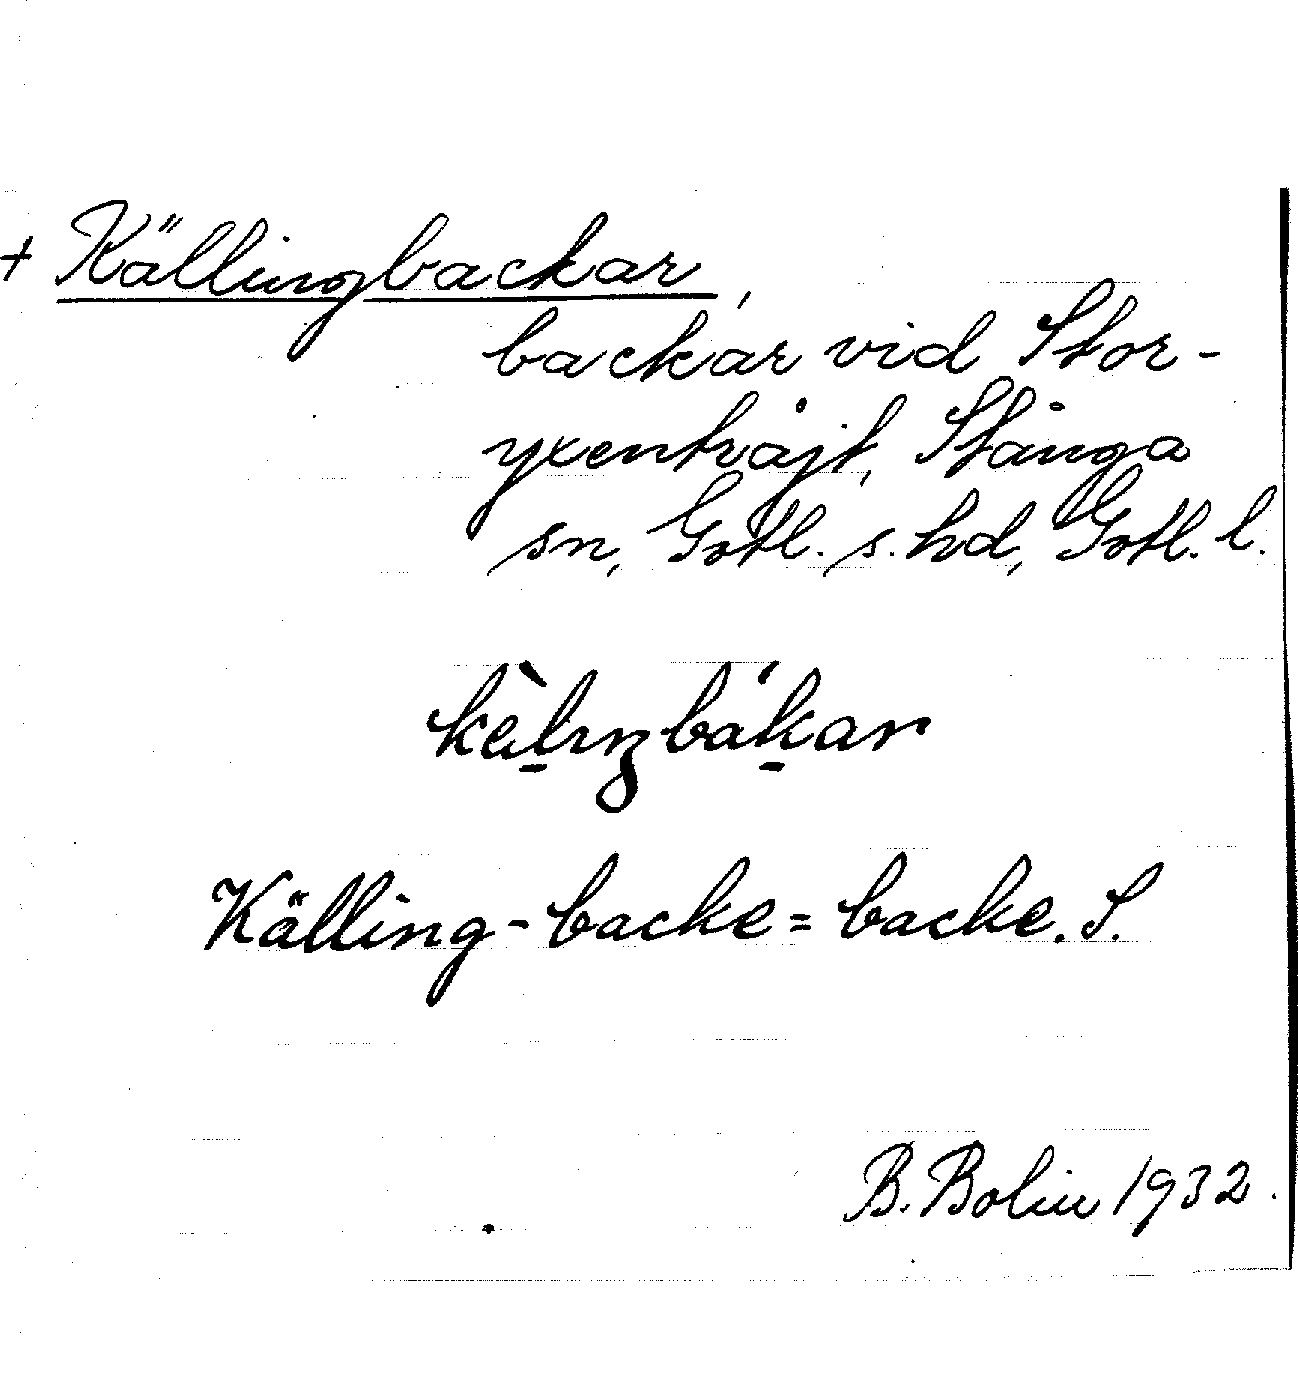 + Källingbackar,
backar vid Stor-
yxenträjt, Stånga
sn, Gotl. s. hd, Gotl. l.
kèlıŋbákar
Källing-backe = backe. S.
B. Bolin 1932.